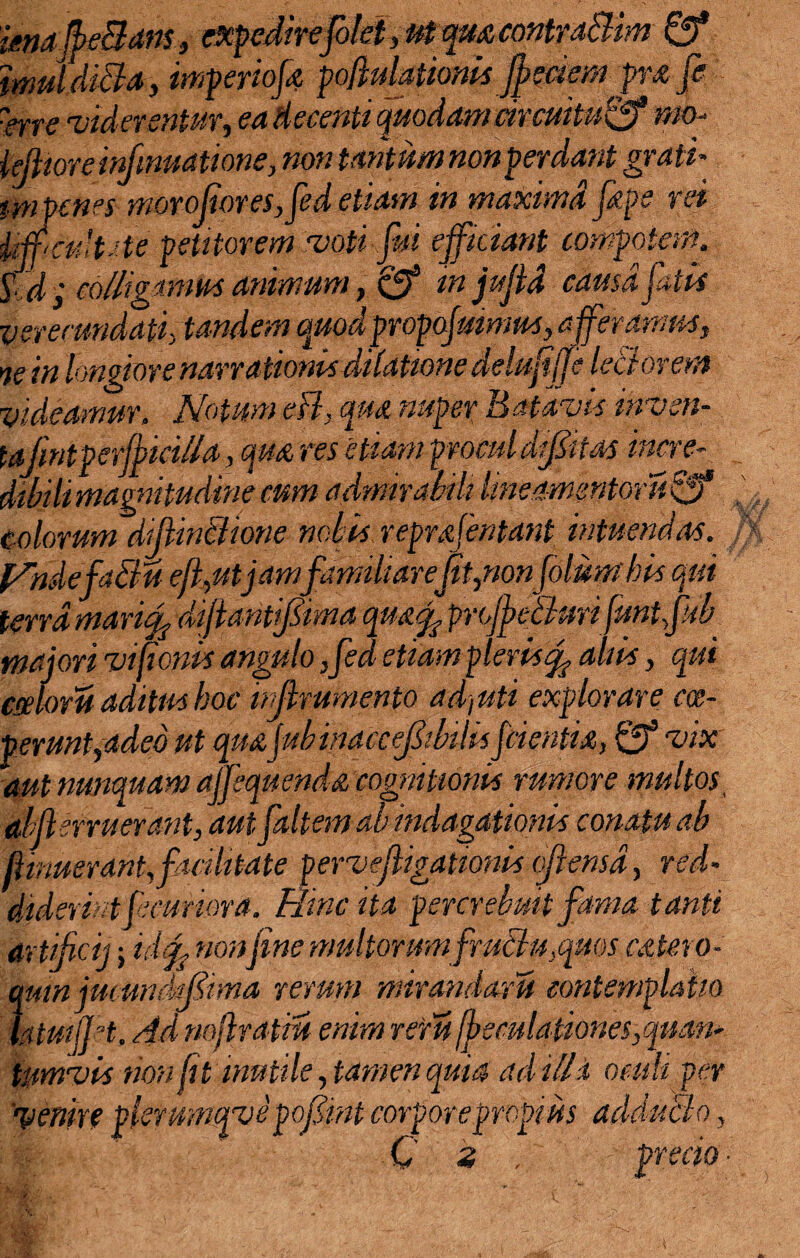 iena ſpectans, expedire ſolet, ut quæ contractim &
ſimul dicta, imperioſæ poſtulationis ſpeciem præ ſe
ferre viderentur, ea decenti quodam circuitu & mo-
leſtiore inſinuatione, non tantùm non perdant grati-
am penes moroſiores, ſed etiam in maximâ ſæpe rei
difficultate petitorem voti ſui efficiant compotem.
Sed; colligamus animum, & in juſtâ causâ ſatis
verecundati, tandem quod propoſuimus, afferamus,
ne in longiore narrationis dilatione deluſiſſe lectorem
videamur. Notum eſt, quæ nuper Batavis inven-
ta ſint perſpicilla, quæ res etiam procul diſſitas incre-
dibili magnitudine cum admirabili lineamentorũ &
colorum diſtinctione nobis repræſentant intuendas.
Vnde factũ eſt, ut jam familiare ſit, non ſolùm his qui
terrâ mariq́ue diſtantiſſima quæq́ue proſpecturi ſunt, ſub
majori viſionis angulo, ſed etiam pleriſq́ue aliis, qui
cælorũ aditus hoc inſtrumento adjuti explorare cœ-
perunt, adeò ut quæ ſub inacceſſibilis ſcientiæ, & vix
aut nunquam aſſequendæ cognitionis rumore multos
abſterruerant, aut ſaltem ab indagationis conatu ab
ſtinuerant, facilitate perveſtigationis oſtensâ, red-
diderint ſecuriora. Hinc ita percrebuit fama tanti
artificij; idq́ue non ſine multorum fructu, quos cætero-
quin jucundiſſima rerum mirandarũ contemplatio
latuiſſet. Ad noſtratiũ enim rerũ ſpeculationes, quan-
tumvis non ſit inutile, tamen quia ad illa oculi per
venire plerumqvè poſſint corpore propiùs adducto,
C 2 precio